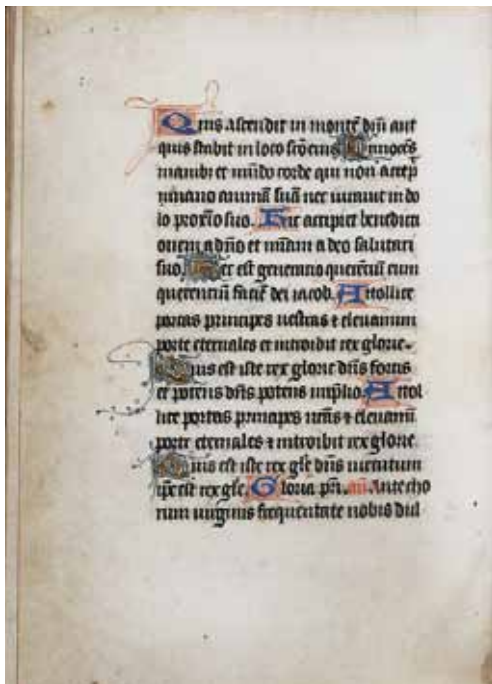 Quis ascendit in montē dñi aut
quis stabit in loco scō eius Innocēs
manibꝫ et mūdo corde qui non accep̄
in uano animā suā nec iurauit in do
lo proxīo suo. Hic accipiet benedicti
onem a dño et mīam a deo salutari
suo. Hec est generatio querētiū eum
querentiū faciē dei iacob. Attollite
portas principes uestras ⁊ eleuamini
porte eternales et introibit rex glorie.
Quis est iste rex glorie dñs fortis
et potens dñs potens in p̄lio. Attol
lite portas principes ur̄as ⁊ eleuamī
porte eternales ⁊ introibit rex glorie
Quis est iste rex glē dñs uirtutum
ip̄e est rex glē. Gloria pr̄i. añ. Ante tho
rum uirginis frequentate nobis dul